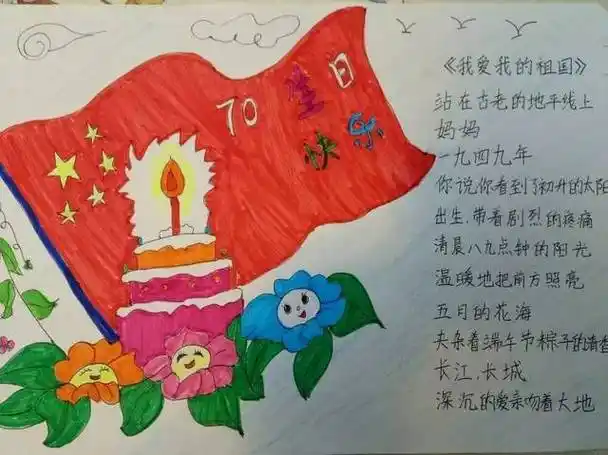 70 望日
快乐
《我爱我的祖国》
站在古老的地平线上
妈妈
一九四九年
你说你看到了初升的太阳
出生,带着剧烈的疼痛
清晨八九点钟的阳光
温暖地把前方照亮
五日的花海
夹杂着端午节粽子的清香
长江,长城
深沉的爱亲吻着大地